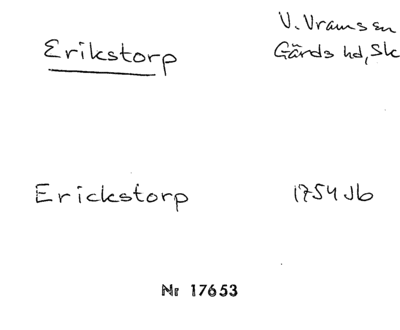 Erikstorp
V. Vram ssn
Gärds hd, Sk
Erickstorp
1754 Jb
Nr 17653